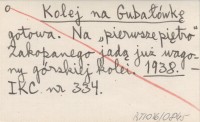 o
Kolej na Gubałówkę
gotowa. Na „pierwsze piętro"
Zakopanego jadą już wago-
ny górskiej kolei. 1938. –
IKC nr 334.